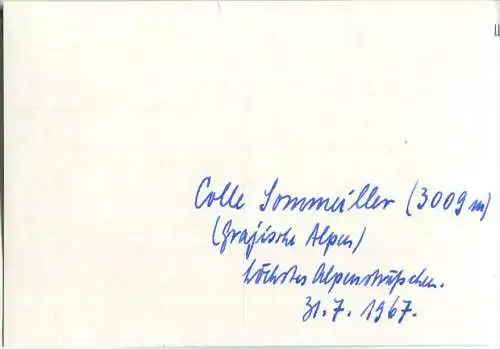 Colle Sommeiller (3009 m)
(Grajische Alpen)
höchstes Alpensträßchen.
31.7.1967.